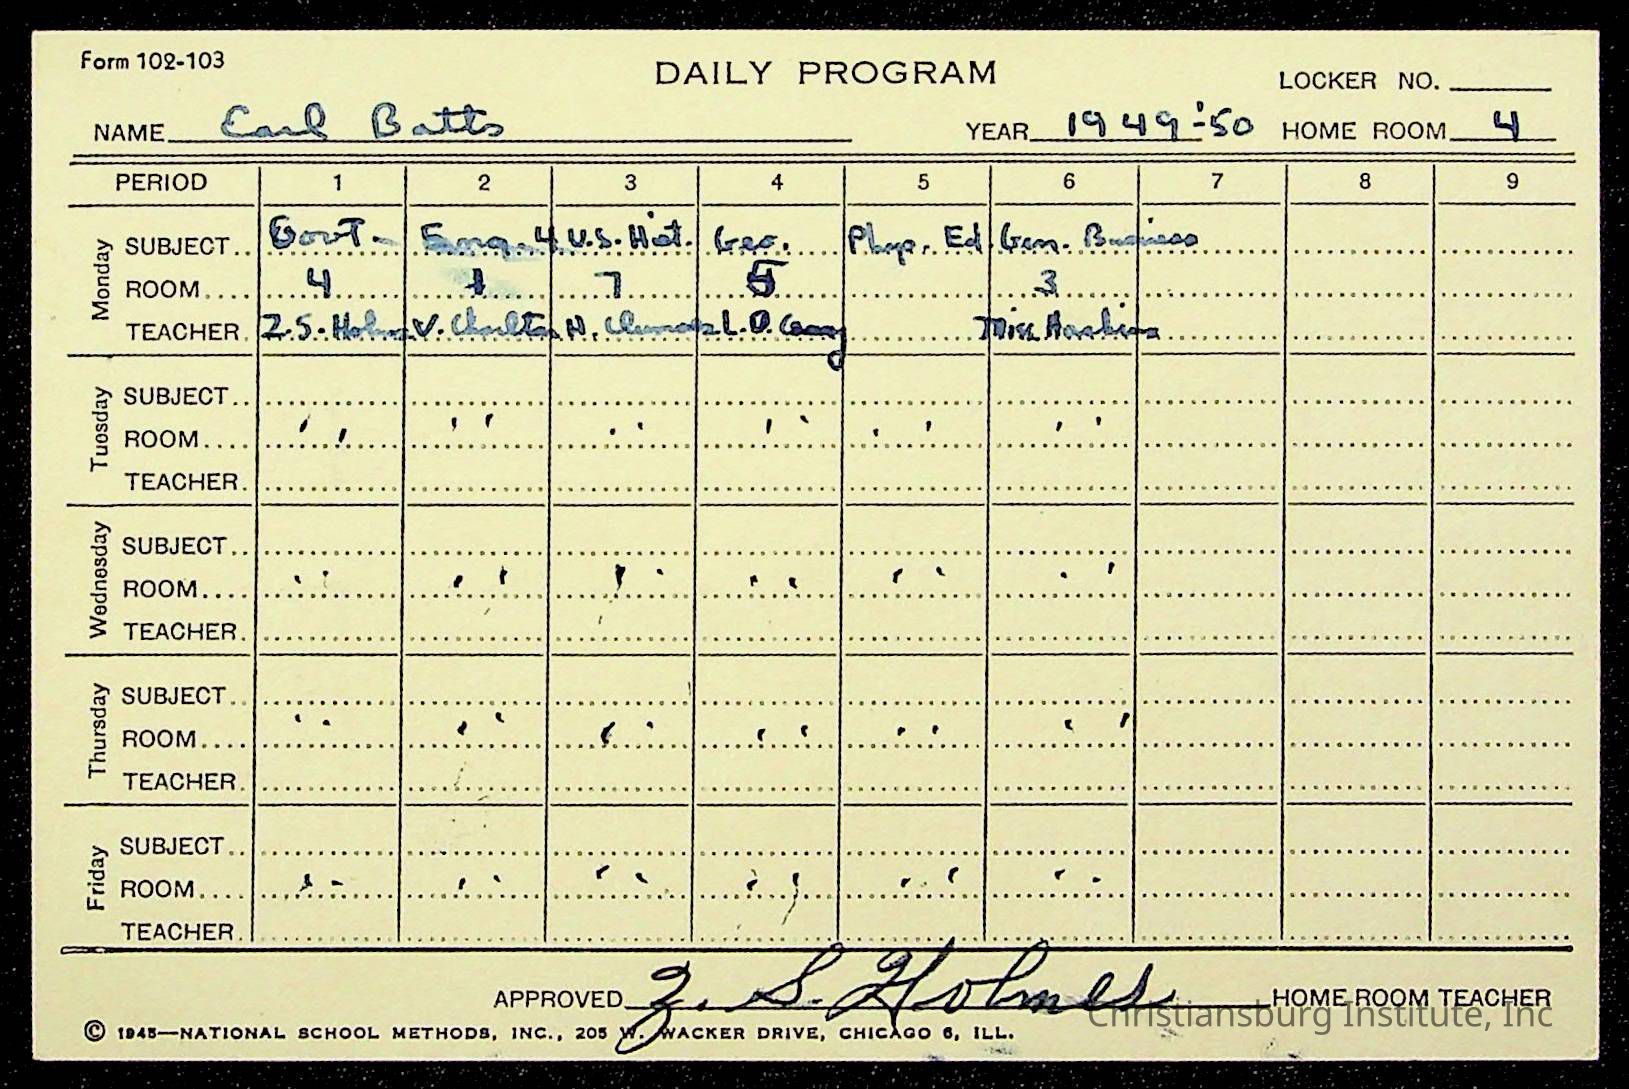 Form 102-103
DAILY PROGRAM
LOCKER NO.
NAME Earl Batts YEAR 1949-'50 HOME ROOM 4
PERIOD 1 2 3 4 5 6 7 8 9
Monday
SUBJECT Govt- Eng. 4 U.S. Hist. Geo. Phys. Ed Gen. Business
ROOM 4 1 7 5 3
TEACHER Z.S. Holmes V. Charlton N. L. D. Miss Hawkins
Tuesday
SUBJECT
ROOM " " " " " "
TEACHER
Wednesday
SUBJECT
ROOM " " " " " "
TEACHER
Thursday
SUBJECT
ROOM " " " " " "
TEACHER
Friday
SUBJECT
ROOM " " " " " "
TEACHER
APPROVED Z. S. Holmes HOME ROOM TEACHER
Christiansburg Institute, Inc
© 1945—NATIONAL SCHOOL METHODS, INC., 205 W. WACKER DRIVE, CHICAGO 6, ILL.